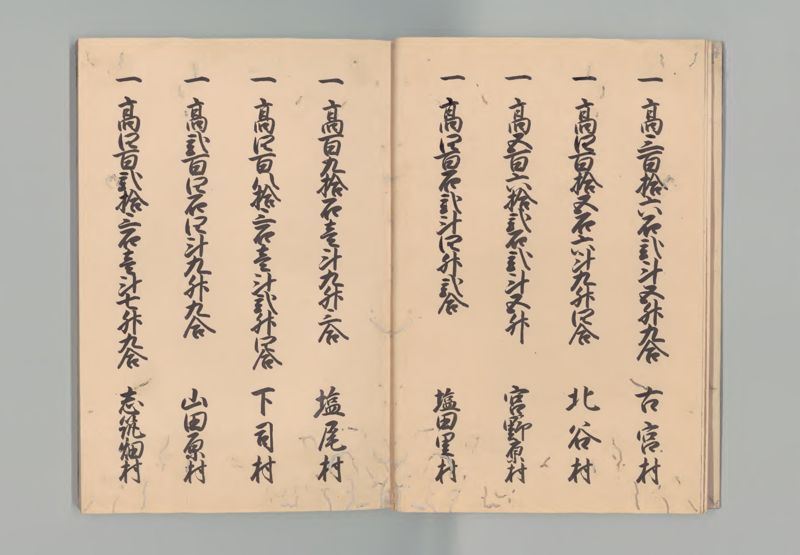 一 高三百拾六石弐斗五升九合 古宮村
一 高四百拾五石六斗九升四合 北谷村
一 高五百六拾弐石弐斗五升 宮野原村
一 高四百石弐斗四升弐合 塩田里村
一 高百九拾石壱斗九升三合 塩尾村
一 高四百八拾三石壱斗弐升四合 下司村
一 高弐百四石四斗九升九合 山田原村
一 高四百弐拾三石壱斗七升九合 志筑畑村